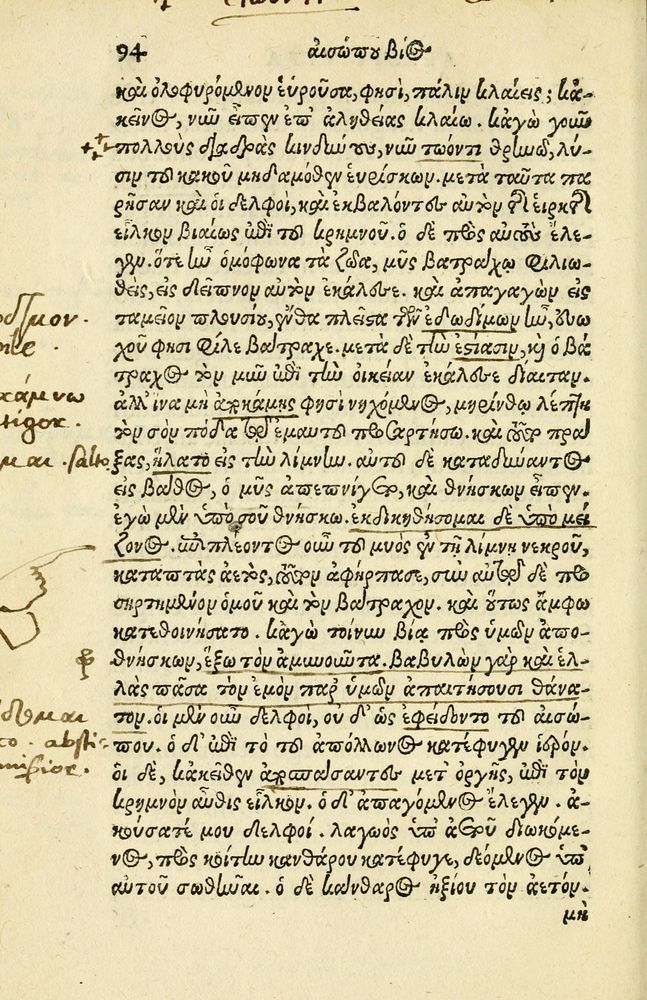 94 αἰσώπου βίος
καὶ ὀλοφυρόμενον εὑροῦσα, φησὶ, πάλιν κλαίεις; κἀ-
κεῖνος, νῦν εἶπεν ἐπ' ἀληθείας κλαίω. κἀγὼ γοῦν
πολλοὺς διαδρὰς κινδύνους, νῦν τωόντι θρηνῶ, λύ-
σιν τοῦ κακοῦ μηδαμόθεν εὑρίσκων. μετὰ ταῦτα πα
ρῆσαν καὶ οἱ δελφοὶ, καὶ ἐκβαλόντες αὐτὸν τῆς εἱρκτῆς
εἷλκον βιαίως ἐπὶ τοῦ κρημνοῦ. ὁ δὲ πρὸς αὐτοὺς ἔλε-
γεν. ὅτε ἦν ὁμόφωνα τὰ ζῶα, μῦς βατράχῳ φιλιω-
θεὶς, εἰς δεῖπνον αὐτὸν ἐκάλεσε. καὶ ἀπαγαγὼν εἰς
ταμεῖον πλουσίου, ἔνθα πλεῖστα τῶν ἐδωδίμων ἦν, εὐω
χοῦ φησι φίλε βάτραχε. μετὰ δὲ τὴν ἑστίασιν, κὶ ὁ βά
τραχος τὸν μῦν ἐπὶ τὴν οἰκείαν ἐκάλεσε δίαιταν.
ἀλλ' ἵνα μὴ ἀποκάμης φησὶ νηχόμενος, μηρίνθῳ λεπτῇ
τὸν σὸν πόδα τῷ ἐμαυτοῦ προσαρτήσω. καὶ τοῦτο πρά
ξας, ἥλατο εἰς τὴν λίμνην. αὐτοῦ δὲ καταδύαντος
εἰς βάθος, ὁ μῦς ἀπεπνίγετο, καὶ θνήσκων εἶπεν.
ἐγὼ μὲν ὑπὸ σοῦ θνήσκω. ἐκδικηθήσομαι δὲ ὑπὸ μεί
ζονος. ἐπιπλέοντος οὖν τοῦ μυὸς ἐν τῇ λίμνη νεκροῦ,
καταπτὰς ἀετὸς, τοῦτον ἀφήρπασε, σὺν αὐτῷ δὲ προ
σηρτημένον ὁμοῦ καὶ τὸν βάτραχον. καὶ οὕτως ἄμφω
κατεθοινήσατο. κἀγὼ τοίνυν βίᾳ πρὸς ὑμῶν ἀπο-
θνήσκων, ἕξω τὸν ἀμυνοῦντα. βαβυλὼν γὰρ καὶ ἑλ-
λὰς πᾶσα τὸν ἐμὸν παρ' ὑμῶν ἀπαιτήσουσι θάνα-
τον. οἱ μὲν οὖν δελφοὶ, οὐ δ' ὣς ἐφείδοντο τοῦ αἰσώ-
που. ὁ δ' ἐπὶ τὸ τοῦ ἀπόλλωνος κατέφυγεν ἱερόν.
οἱ δὲ, κἀκεῖθεν ἀποσπάσαντες μετ' ὀργῆς, ἐπὶ τὸν
κρημνὸν αὖθις εἷλκον. ὁ δ' ἀπαγόμενος ἔλεγεν. ἀ-
κούσατέ μου δελφοί. λαγωὸς ὑπ' ἀετοῦ διωκόμε-
νος, πρὸς κοίτην κανθάρου κατέφυγε, δεόμενος ὑπ'
αὐτοῦ σωθῆναι. ὁ δὲ κάνθαρος ἠξίου τὸν ἀετόν.
μὴ
salto
abst